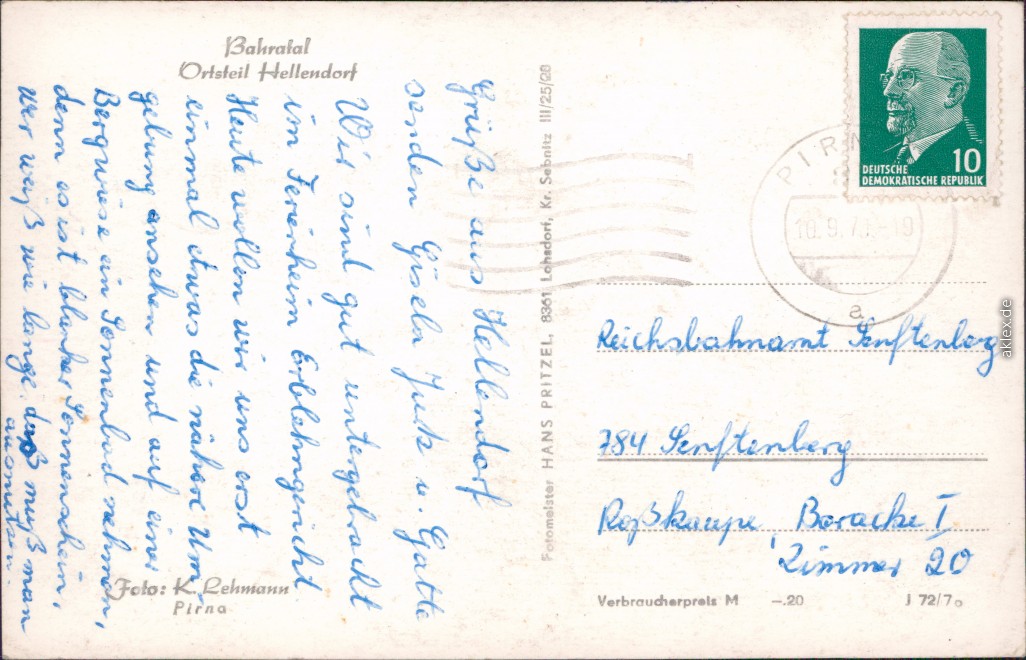 Bahratal
Ortsteil Hellendorf
Grüße aus Hellendorf
senden Gisela Juk u. Gatte
Wir sind gut untergebracht
im Ferienheim Erblehngericht
Heute wollen wir uns erst
einmal etwas die nähere Um-
gebung ansehen und auf einer
Bergwiese ein Sonnenbad nehmen,
denn es ist blanker Sonnenschein,
Wer weiß wie lange, das muß man
ausnutzen.
Foto: K. Lehmann
Pirna
Fotomeister HANS PRITZEL, 8361 Lohsdorf, Kr. Sebnitz III/25/28
DEUTSCHE
DEMOKRATISCHE REPUBLIK
10
PIRN
10.9.71.-19
a
Reichsbahnamt Senftenberg
784 Senftenberg
Roßkaupe, Baracke I
Zimmer 20
Verbraucherpreis M -.20 J 72/70
aklex.de